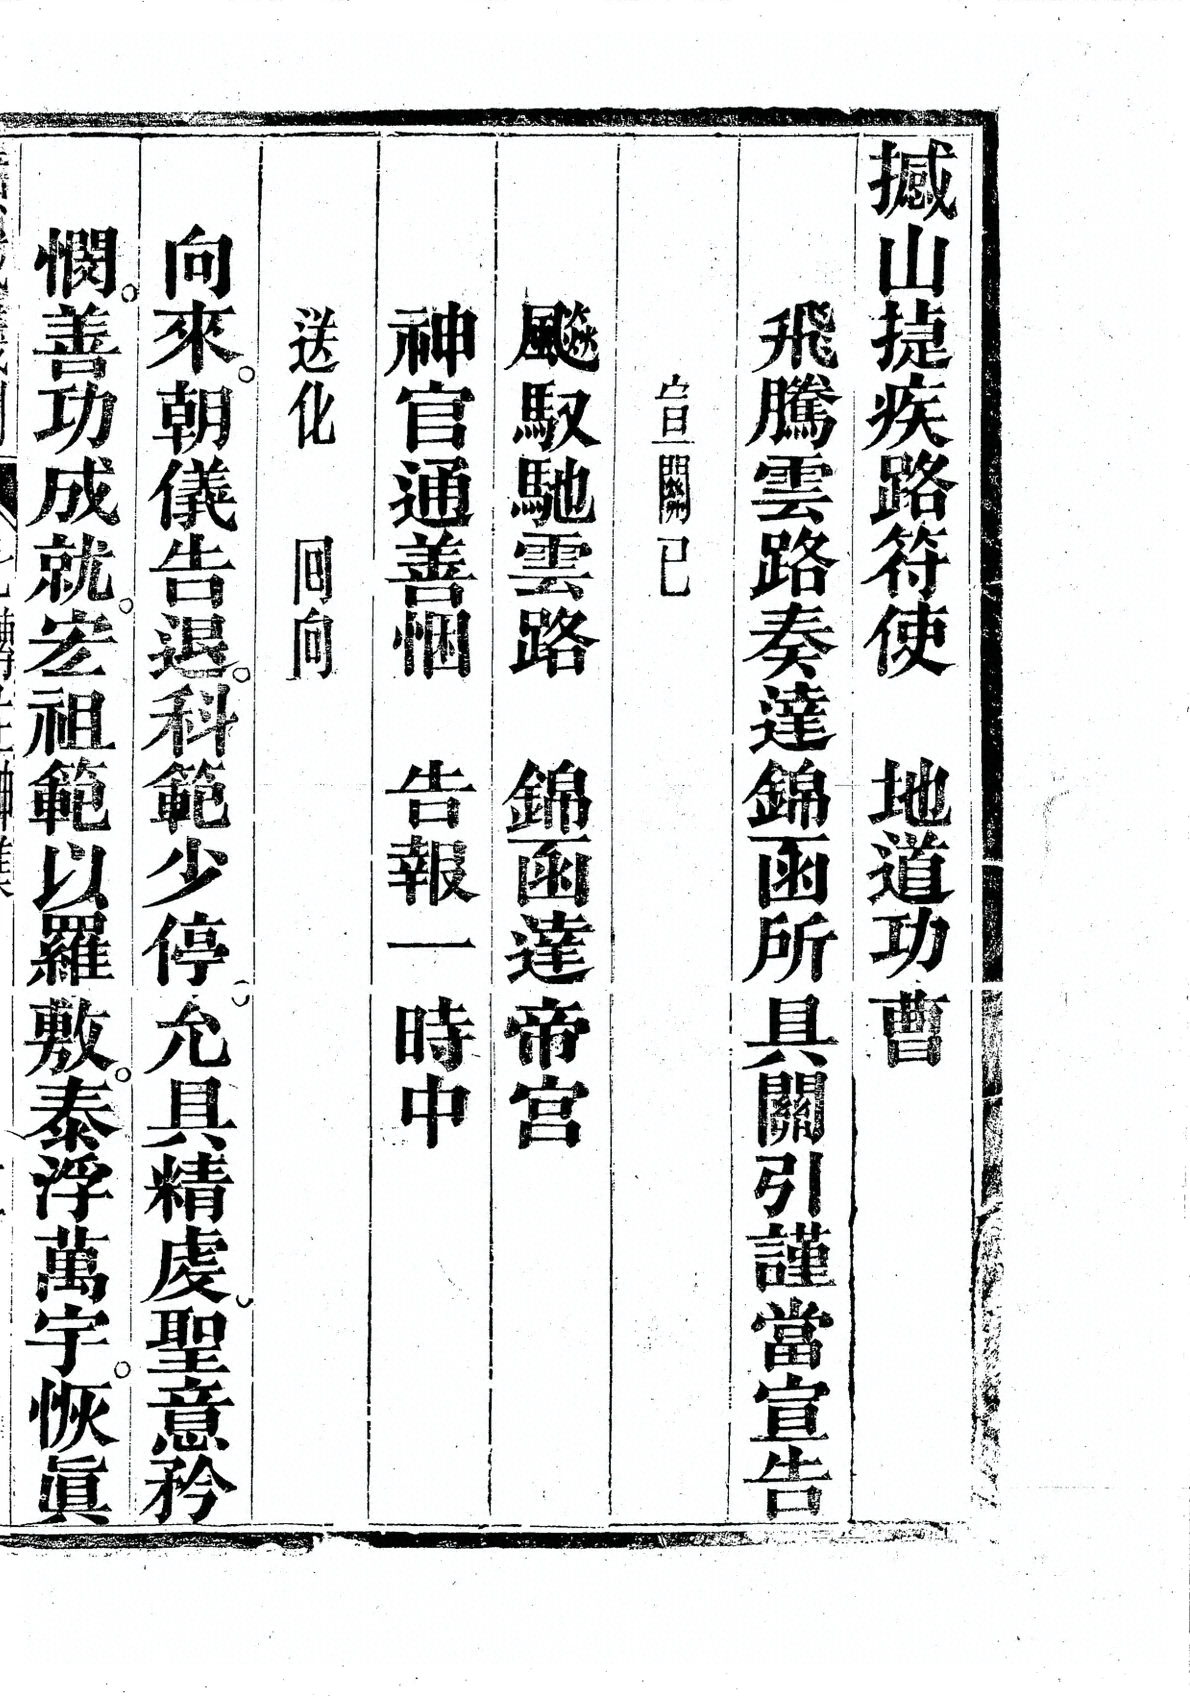 撼山㨗疾路符使　地道功曹
飛騰雲路奏達錦函所具關引謹當宣告
宣關已
飈馭馳雲路　錦函達帝宫
神官通善悃　告報一時中
送化　回向
向來。朝儀告退。科範少停。允具精虔。聖意矜
憫。善功成就。宏祖範以羅敷。泰浮萬宇。恢眞